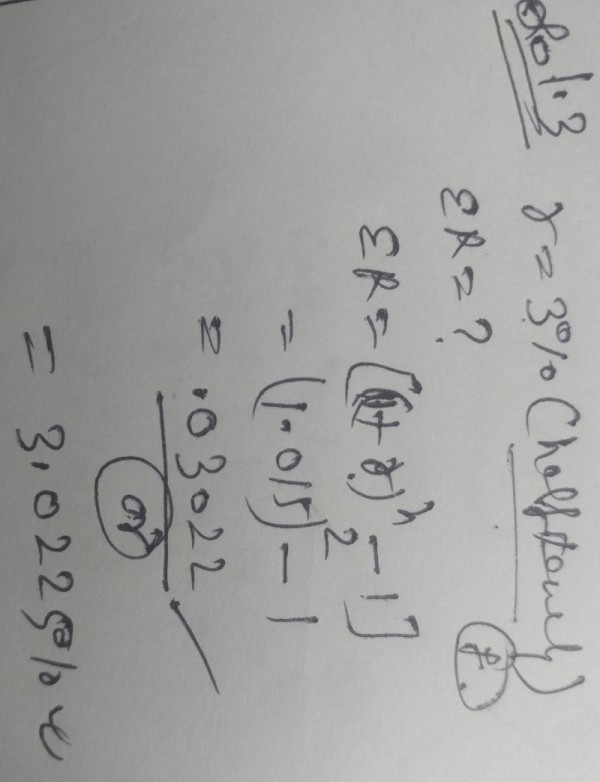 Sol.3
r = 3% (half yearly)
ER = ?
ER = [(1+r)ⁿ - 1]
= (1.015)² - 1
= .03022
or
= 3.0225%